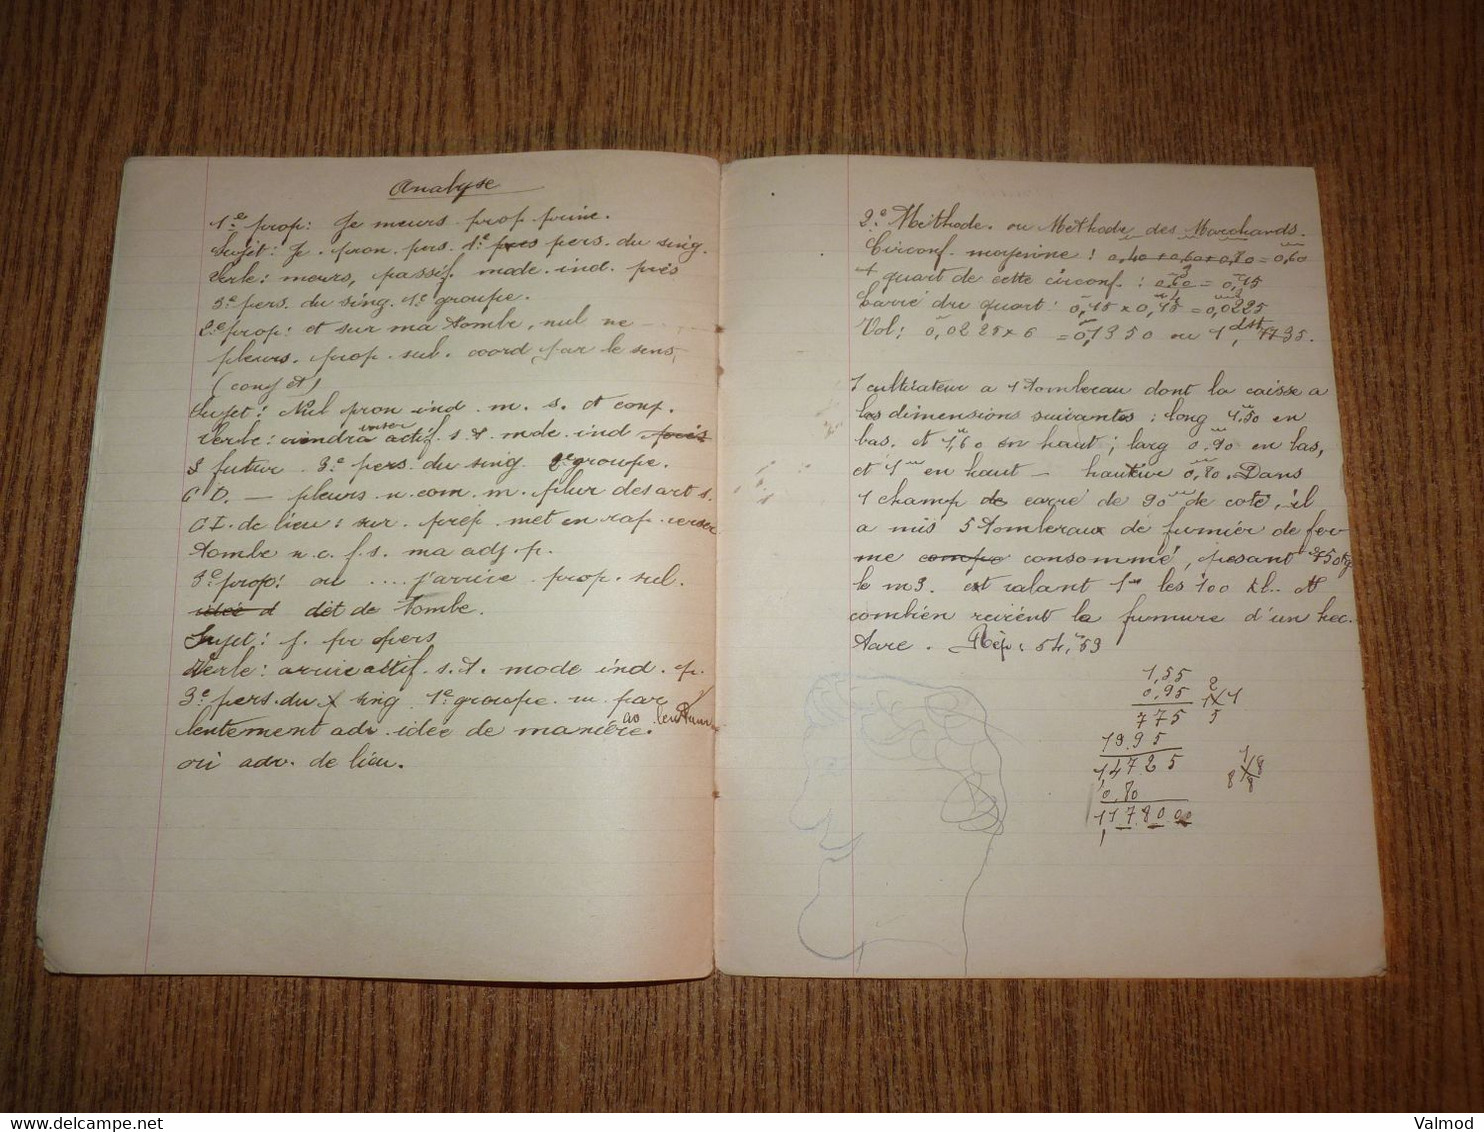 Analyse
1e prop: Je meurs prop. princ.
Sujet: Je. pron. pers. 1e pers. du sing.
Verbe: meurs, passif. mode. ind. prés
3e pers. du sing. 1e groupe.
2e prop: et sur ma tombe, nul ne
pleurs. prop. sub. coord. par le sens,
(conj et)
Sujet: Nul pron. ind. m. s. et conj.
verser
Verbe: viendra actif. s. t. mode. ind prés
3 futur 3e pers. du sing. 2e groupe.
C D. — pleurs. n. com. m. plur des art s.
C I. de lieu: sur. prép. met en rap. verser
tombe n. c. f. s. ma adj. p.
3e prop: où .... j'arrive prop. sub.
idée d dét de tombe.
Sujet: j. pr pers
Verbe: arrive actif. s. t. mode ind. p.
3e pers. du sing 1e groupe.
lentement adv. idée de manière.
où adv. de lieu.
2e Méthode. ou Méthode des Marchands.
Circonf. moyenne: 0,40 + 0,60 + 0,80 = 0,60
quart de cette circonf.: 0,60 = 0,15
Carré du quart: 0,15 x 0,15 = 0,0225
Vol: 0,0225 x 6 = 0,1350 ou 1 dst,35.
1 cultivateur a 1 tombereau dont la caisse a
les dimensions suivantes: long 1,50 en
bas. et 1,60 en haut; larg 0,90 en bas,
et 1m en haut — hauteur 0,80. Dans
1 champ de carré de 90m de coté, il
a mis 5 tombereaux de fumier de fer-
me consommé, pesant 750kg
le m3. et valant 1 les 100 kl.. A
combien revient la fumure d'un hec-
tare. Rép: 54,59
1,55
0,95
775
1395
1,4725
0,80
1,178000
2
1 x 1
5
1
8 x 8
8